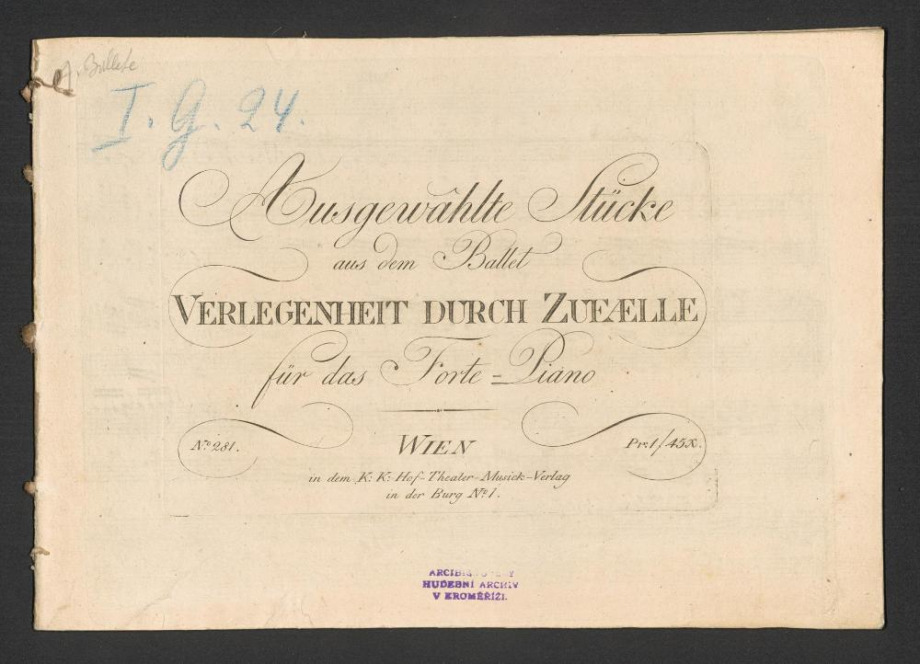 A. Ballete
I. G. 24.
Ausgewählte Stücke
aus dem Ballet
VERLEGENHEIT DURCH ZUFÆLLE
für das Forte=Piano
Nº 281.
WIEN
Pr: 1 / 45x.
in dem K: K: Hof-Theater-Musick-Verlag
in der Burg Nº 1.
HUDEBNÍ ARCHIV
V KROMĚŘÍŽI.